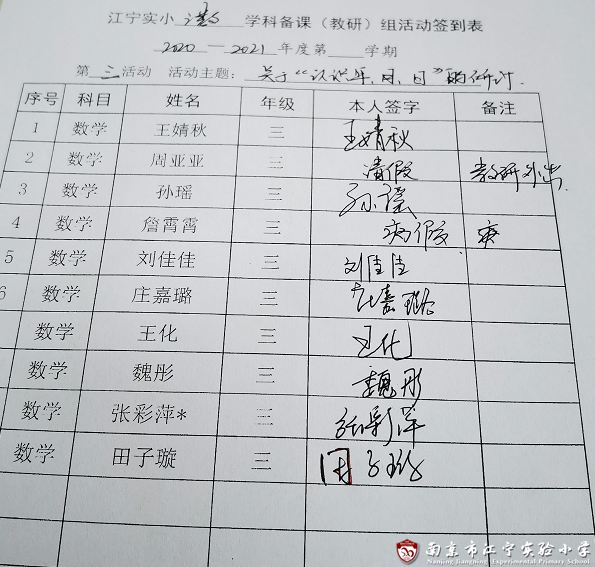 江宁实小 学科备课（教研）组活动签到表
2020—2021年度第 学期
第 三 活动 活动主题：关于“认识年、月、日”的研讨.
序号 科目 姓名 年级 本人签字 备注
1 数学 王婧秋 三 王婧秋
2 数学 周亚亚 三 请假 教研外出
3 数学 孙瑶 三 孙瑶
4 数学 詹霄霄 三 病假 病
5 数学 刘佳佳 三 刘佳佳
6 数学 庄嘉璐 三 庄嘉璐
数学 王化 三 王化
数学 魏彤 三 魏彤
数学 张彩萍* 三 张彩萍
数学 田子璇 三 田子璇
南京市江宁实验小学
Nanjing Jiangning Experimental Primary School